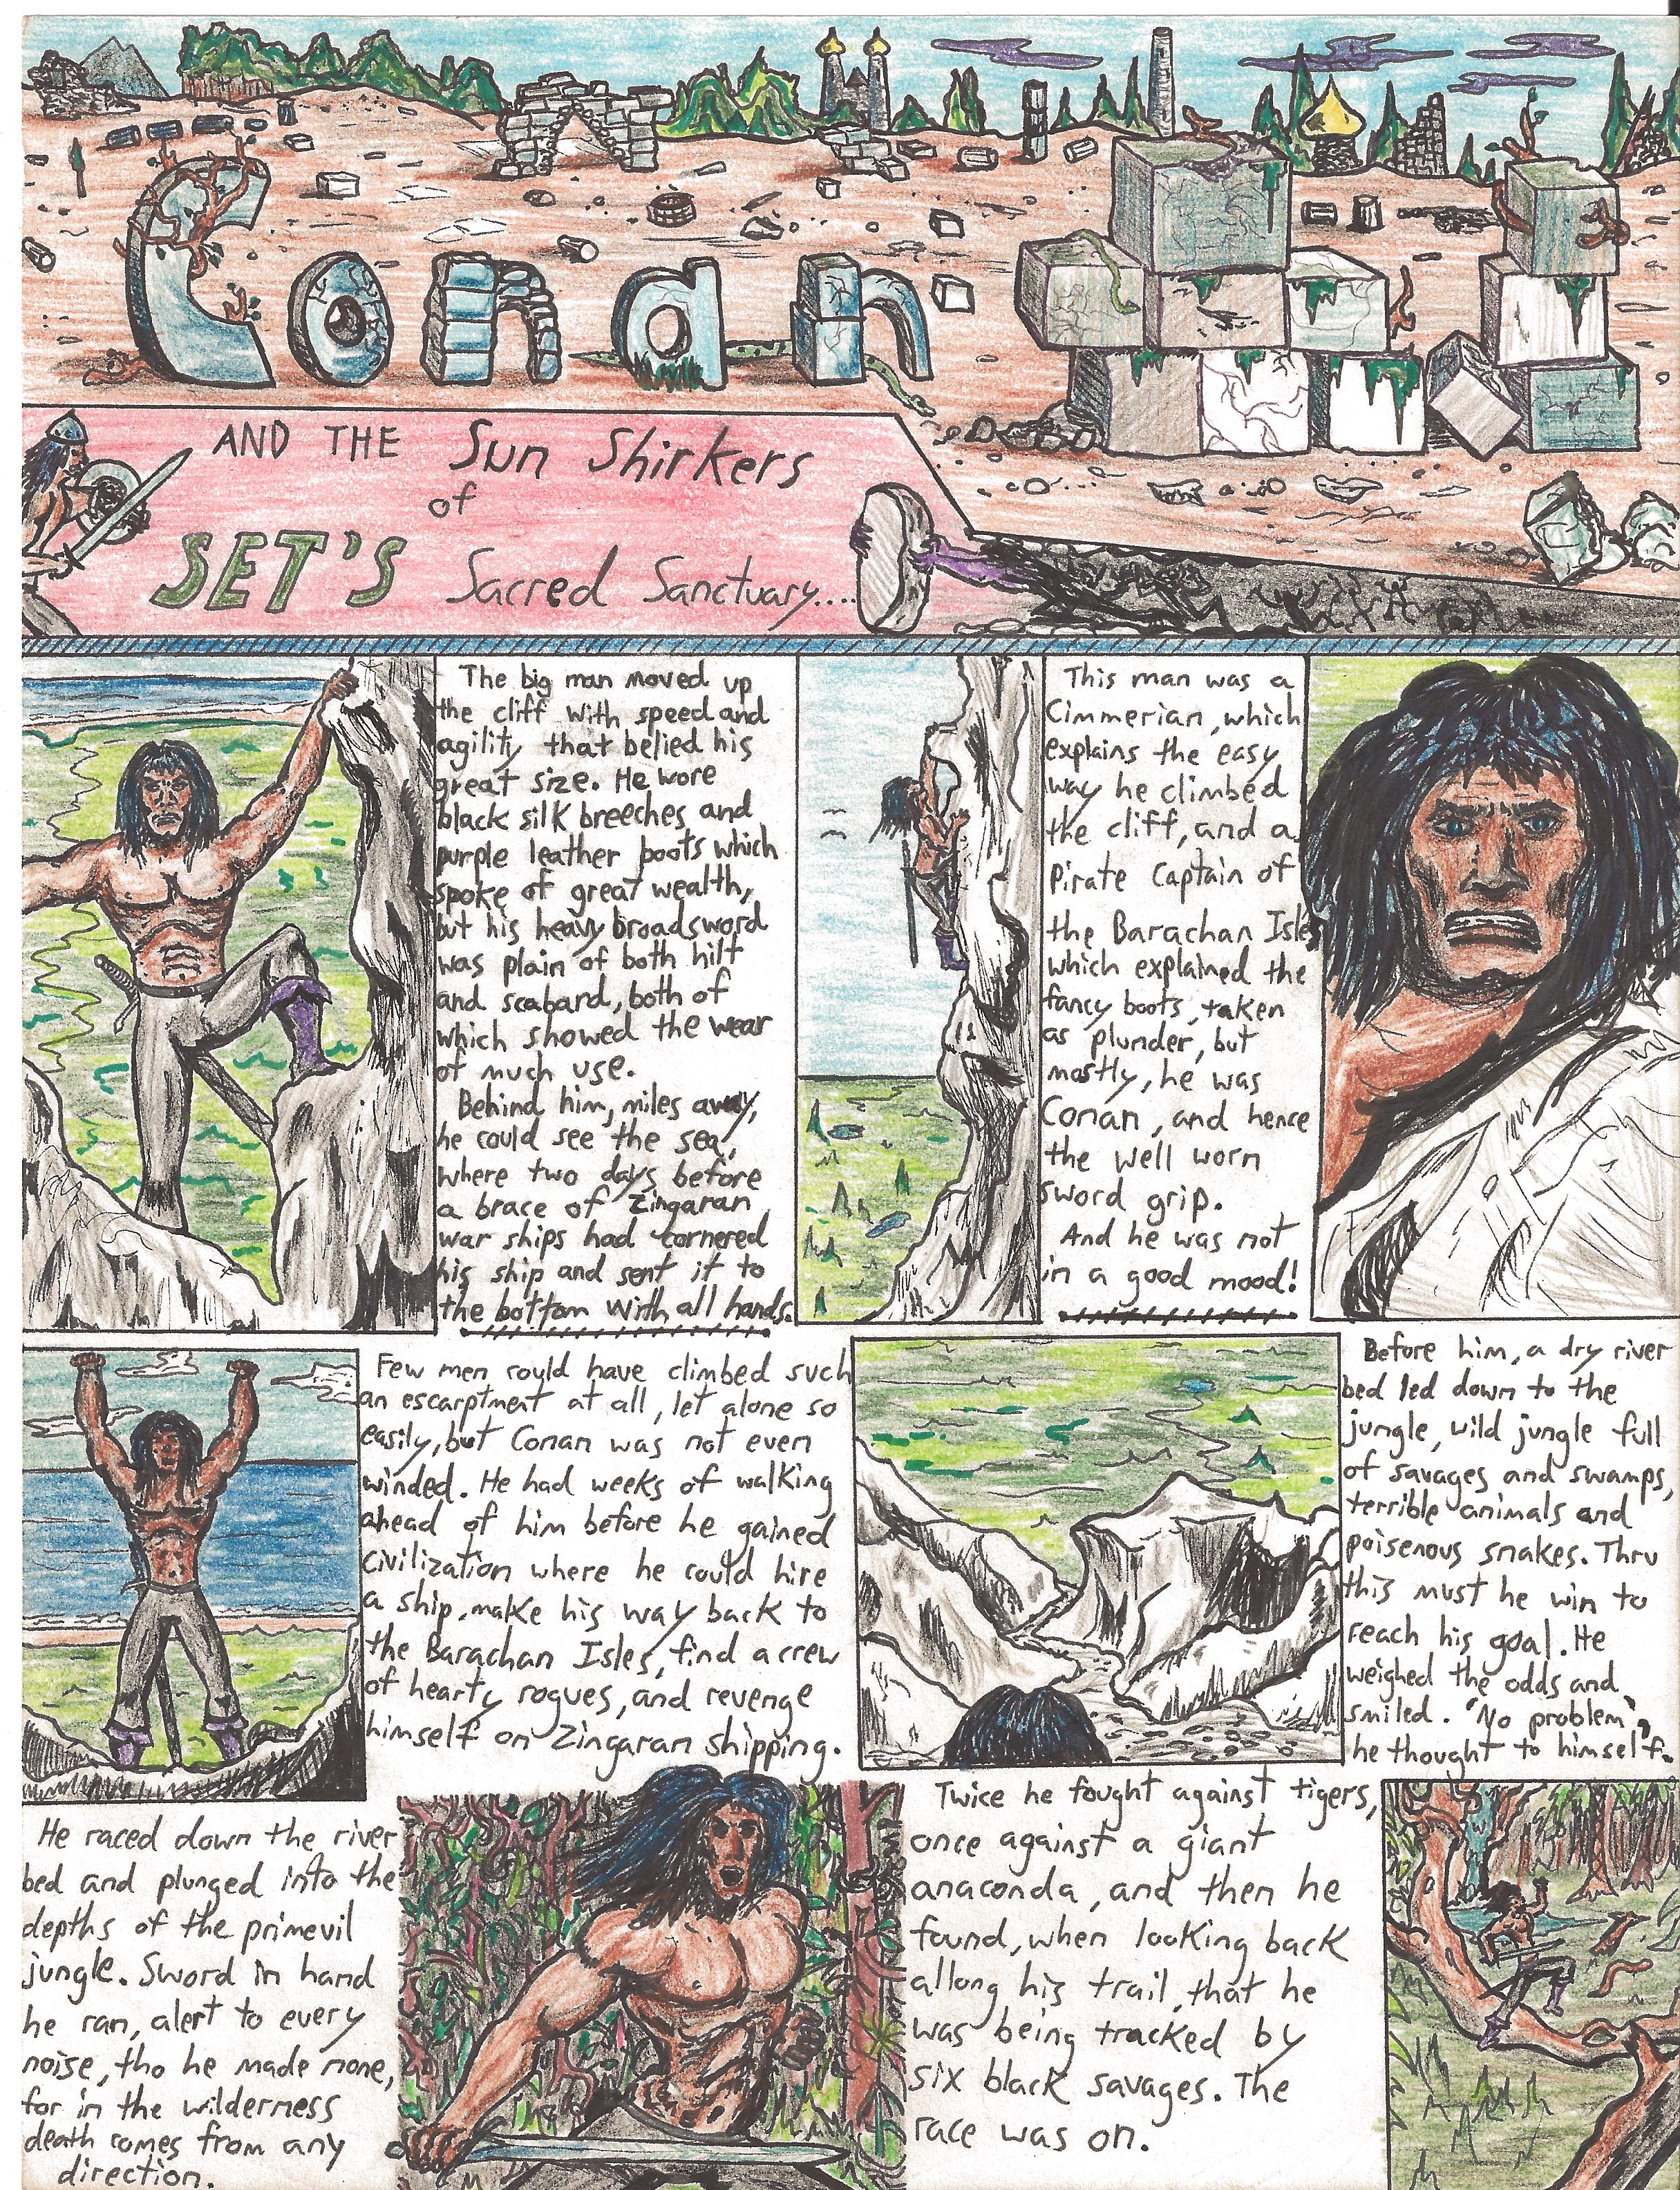 Conan
AND THE Sun Shirkers
of
SET'S Sacred Sanctuary....
The big man moved up
the cliff with speed and
agility that belied his
great size. He wore
black silk breeches and
purple leather boots which
spoke of great wealth,
but his heavy broadsword
was plain of both hilt
and scabard, both of
which showed the wear
of much use.
Behind him, miles away,
he could see the sea,
where two days before
a brace of Zingaran
war ships had cornered
his ship and sent it to
the bottom with all hands.
This man was a
Cimmerian, which
explains the easy
way he climbed
the cliff, and a
Pirate Captain of
the Barachan Isles
which explained the
fancy boots, taken
as plunder, but
mostly, he was
Conan, and hence
the well worn
sword grip.
And he was not
in a good mood!
Few men could have climbed such
an escarptment at all, let alone so
easily, but Conan was not even
winded. He had weeks of walking
ahead of him before he gained
civilization where he could hire
a ship, make his way back to
the Barachan Isles, find a crew
of hearty rogues, and revenge
himself on Zingaran shipping.
Before him, a dry river
bed led down to the
jungle, wild jungle full
of savages and swamps,
terrible animals and
poisenous snakes. Thru
this must he win to
reach his goal. He
weighed the odds and
smiled. "No problem",
he thought to himself.
He raced down the river
bed and plunged into the
depths of the primevil
jungle. Sword in hand
he ran, alert to every
noise, tho he made none,
for in the wilderness
death comes from any
direction.
Twice he fought against tigers,
once against a giant
anaconda, and then he
found, when looking back
allong his trail, that he
was being tracked by
six black savages. The
race was on.